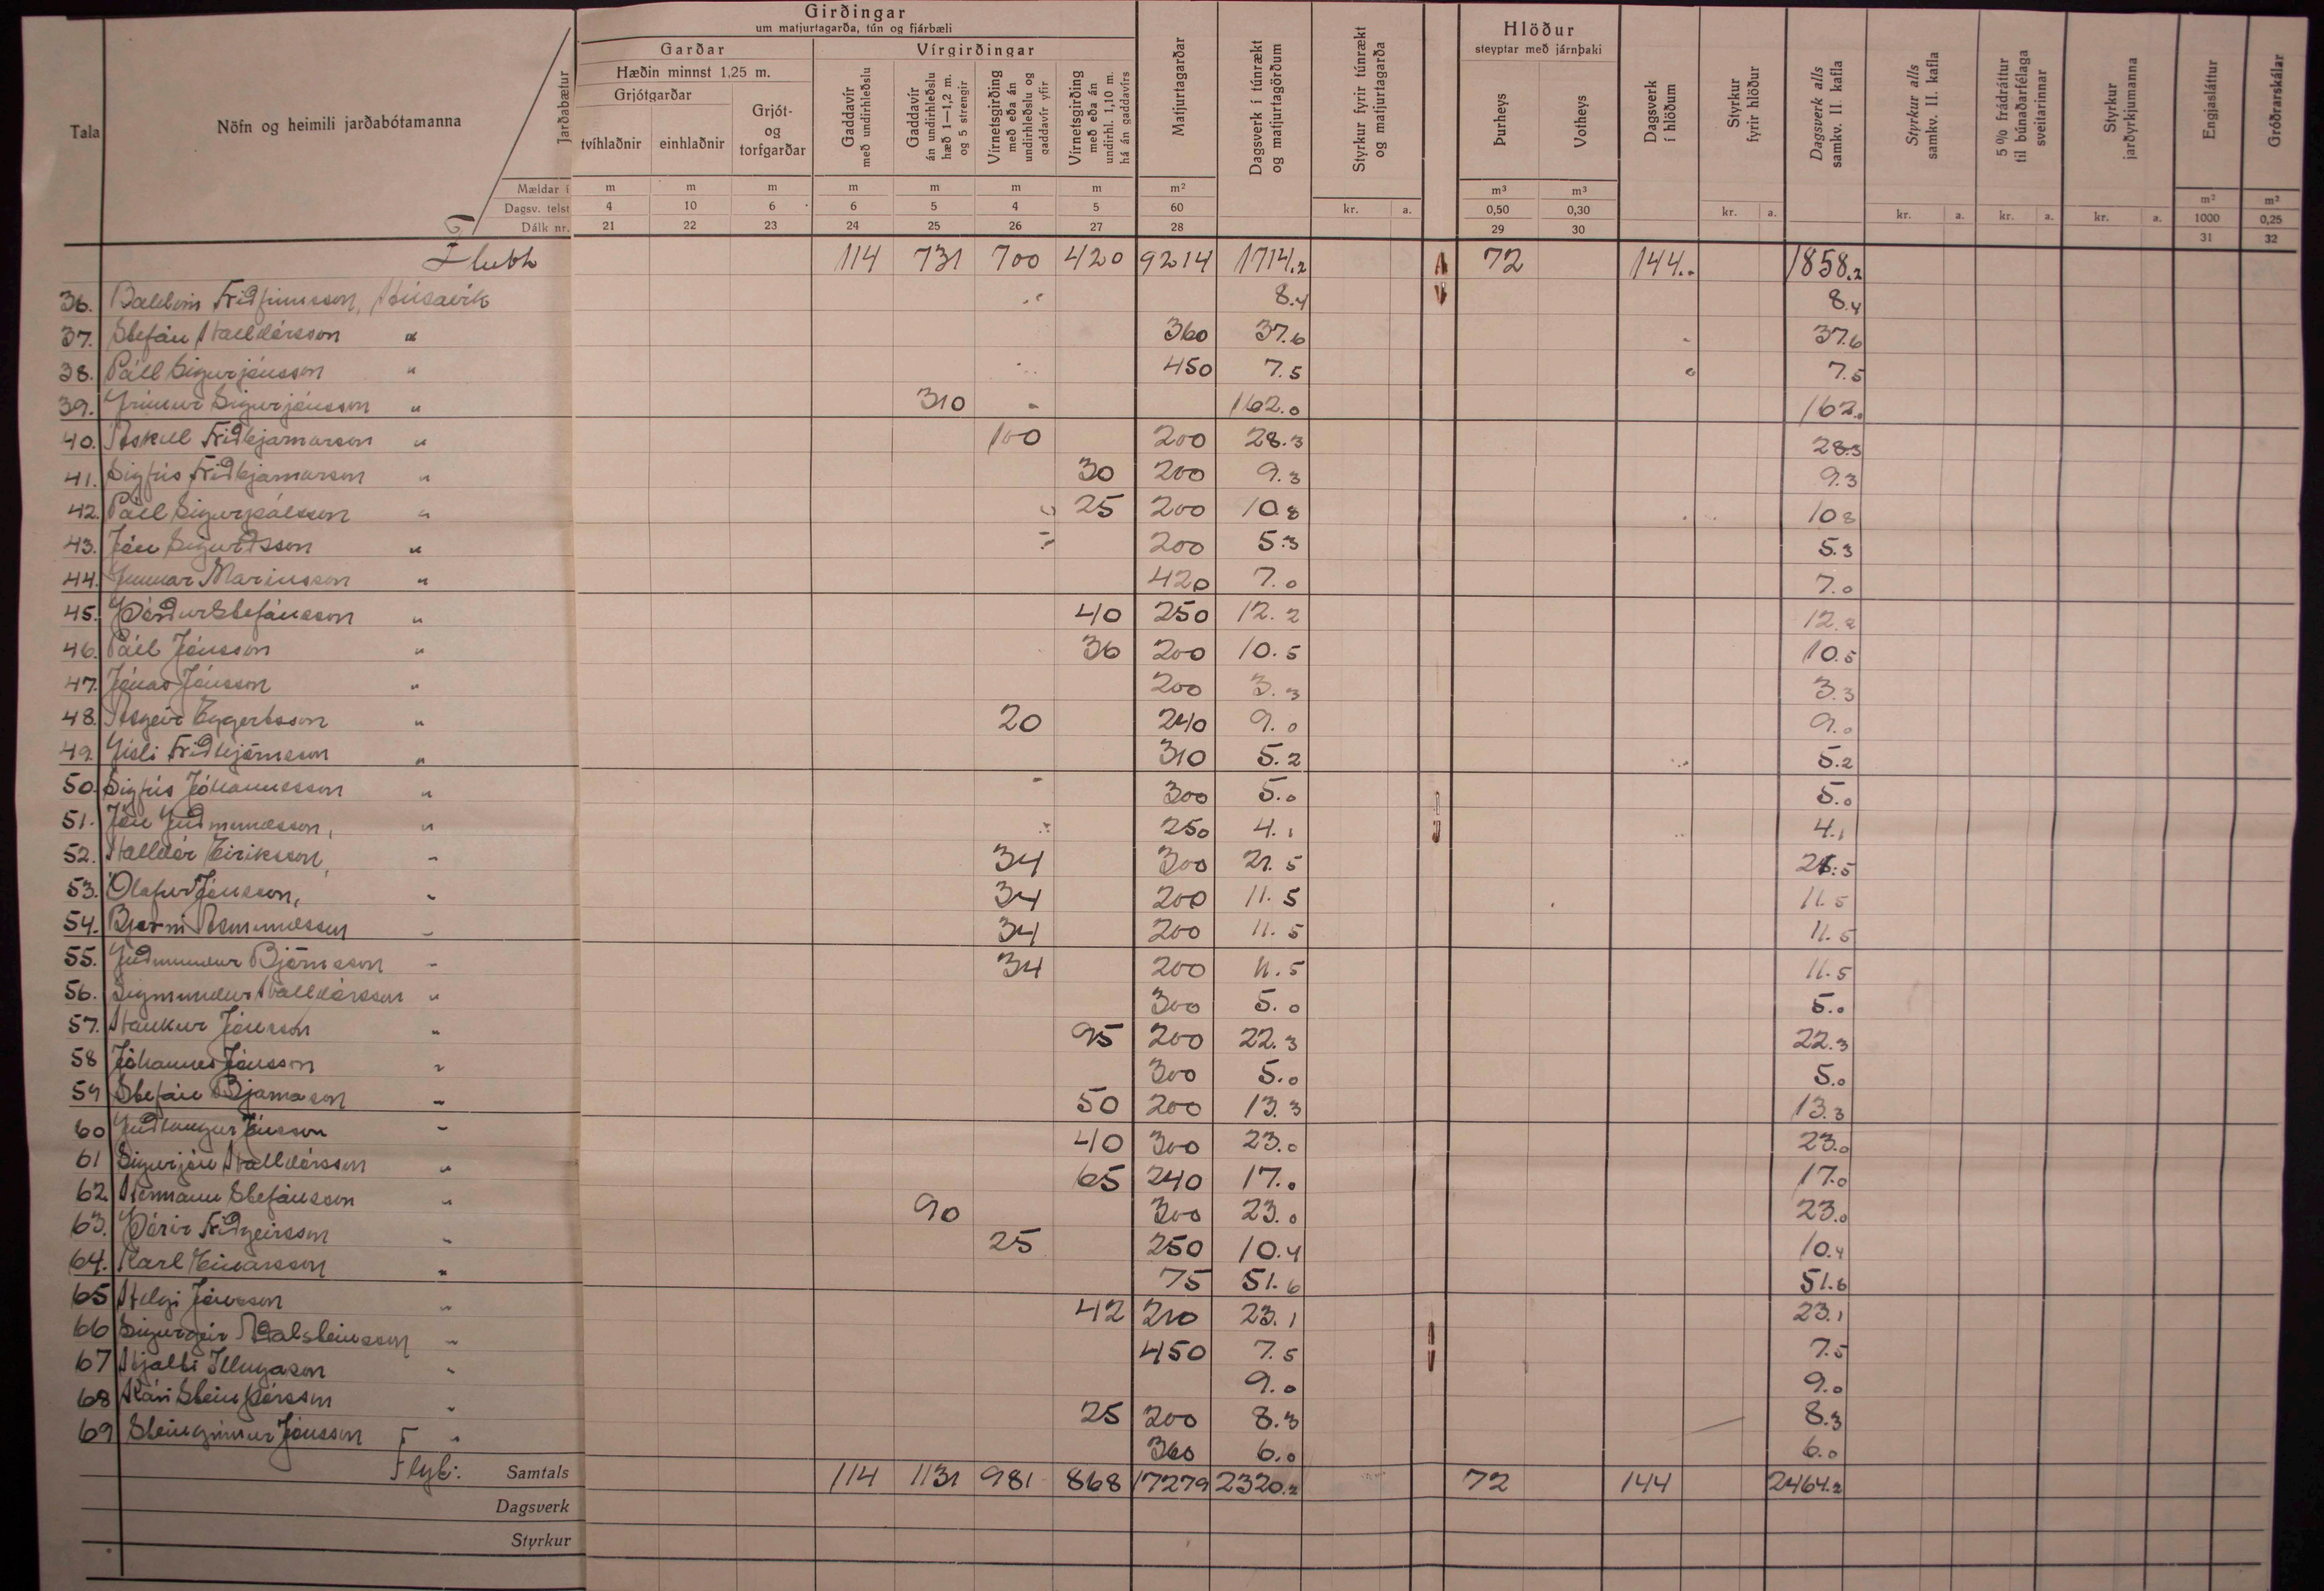 Girðingar
um matjurtagarða, tún og fjárbæli
Garðar
Vírgirðingar
Hæðin minnst 1,25 m.
Grjótgarðar
Hlöður
steyptar með járnþaki
Tala
Nöfn og heimili jarðabótamanna
Jarðabætur
tvíhlaðnir
einhlaðnir
Grjót- og torfgarðar
Gaddavír með undirhleðslu
Gaddavír án undirhleðslu hæð 1—1,2 m. og 5 strengir
Vírnetsgirðing með eða án undirhleðslu og gaddavír yfir
Vírnetsgirðing með eða án undirhl. 1,10 m. há án gaddavírs
Matjurtagarðar
Dagsverk í túnrækt og matjurtagörðum
Styrkur fyrir túnrækt og matjurtagarða
Þurheys
Votheys
Dagsverk í hlöðum
Styrkur fyrir hlöður
Dagsverk alls samkv. II. kafla
Styrkur alls samkv. II. kafla
5% frádráttur til búnaðarfélaga sveitarinnar
Styrkur jarðyrkjumanna
Engjasláttur
Gróðrarskálar
Mældar í m m m m m m m m² m³ m³ m² m²
Dagsv. telst 4 10 6 6 5 4 5 60 kr. a. 0,50 0,30 kr. a. kr. a. kr. a. kr. a. 1000 0,25
Dálk nr. 21 22 23 24 25 26 27 28 29 30 31 32
Flutt 114 731 700 420 9214 1714.2 72 144.. 1858.2
36. Baldvin Friðfinnsson, Húsavík 8.4 8.4
37. Stefán Halldórsson " 360 37.6 37.6
38. Páll Sigurjónsson " 450 7.5 7.5
39. Grímur Sigurjónsson " 310 162.0 162.0
40. Áskell Friðbjarnarson " 100 200 28.3 28.3
41. Sigfús Friðbjarnarson " 30 200 9.3 9.3
42. Páll Sigurpálsson " 25 200 10.8 10.8
43. Jón Sigurðsson " 200 5.3 5.3
44. Gunnar Maríusson " 420 7.0 7.0
45. Þórður Stefánsson " 40 250 12.2 12.2
46. Páll Jónsson " 36 200 10.5 10.5
47. Jónas Jónsson " 200 3.3 3.3
48. Ásgeir Eggertsson " 20 240 9.0 9.0
49. Gísli Friðbjörnsson " 310 5.2 5.2
50. Sigfús Jóhannesson " 300 5.0 5.0
51. Jón Guðmundsson, " 250 4.1 4.1
52. Halldór Eiríksson, " 34 300 21.5 21.5
53. Ólafur Jónsson, " 34 200 11.5 11.5
54. Bjarni Ásmundsson " 34 200 11.5 11.5
55. Guðmundur Björnsson " 34 200 11.5 11.5
56. Sigmundur Halldórsson " 300 5.0 5.0
57. Haukur Jónsson " 95 200 22.3 22.3
58 Jóhannes Jónsson " 300 5.0 5.0
59 Stefán Bjarnason " 50 200 13.3 13.3
60 Guðlaugur Jónsson " 40 300 23.0 23.0
61 Sigurjón Halldórsson " 65 240 17.0 17.0
62. Hermann Stefánsson " 90 300 23.0 23.0
63. Þórir Friðgeirsson " 25 250 10.4 10.4
64. Karl Einarsson " 75 51.6 51.6
65 Helgi Jónsson " 42 210 23.1 23.1
66 Sigurgeir Aðalsteinsson " 450 7.5 7.5
67 Hjalti Illugason " 9.0 9.0
68 Kári Steinþórsson " 25 200 8.3 8.3
69 Steingrímur Jónsson " 360 6.0 6.0
Flyt: Samtals 114 1131 981 868 17279 2320.2 72 144 2464.2
Dagsverk
Styrkur